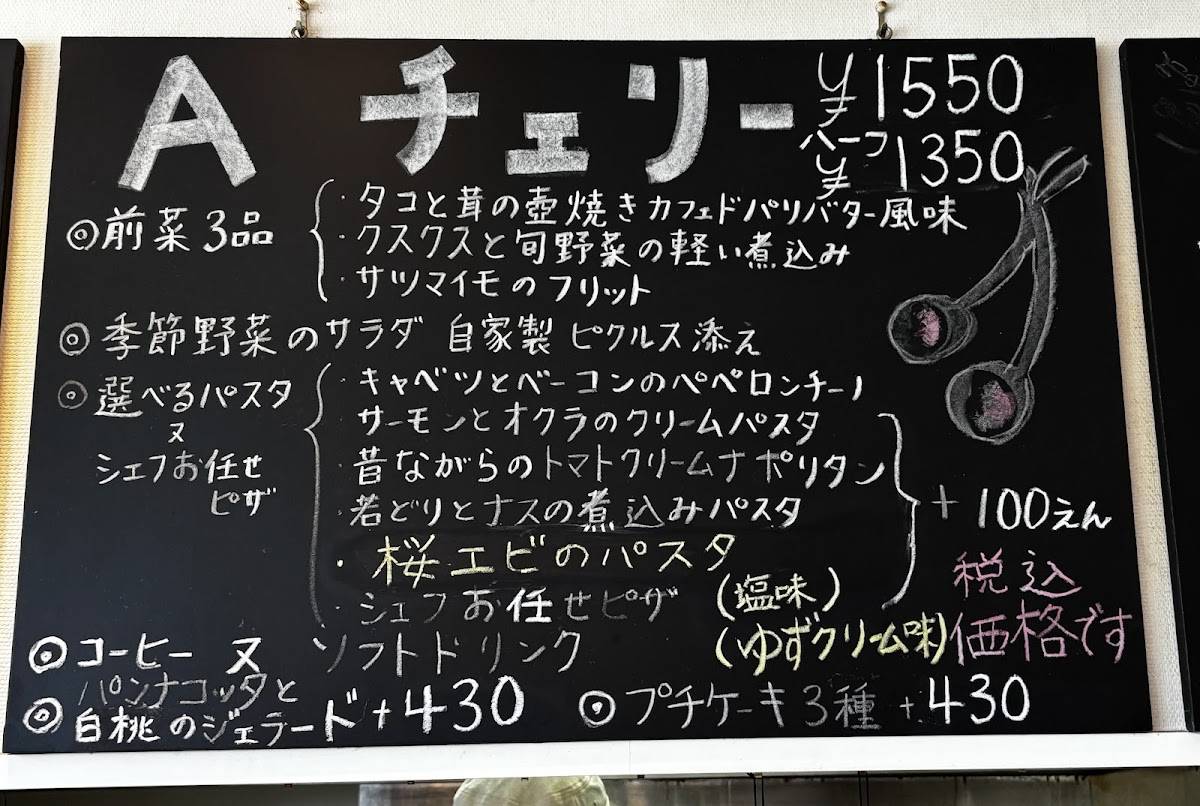 A チェリー ¥1550
ハーフ ¥1350
◎前菜3品
・タコと茸の壺焼きカフェドパリバター風味
・クスクスと旬野菜の軽い煮込み
・サツマイモのフリット
◎季節野菜のサラダ 自家製ピクルス添え
◎選べるパスタ
又
シェフお任せ
ピザ
・キャベツとベーコンのペペロンチーノ
サーモンとオクラのクリームパスタ
・昔ながらのトマトクリームナポリタン
・若どりとナスの煮込みパスタ
・桜エビのパスタ
(塩味)
(ゆずクリーム味)
・シェフお任せピザ
+100えん
税込
価格です
◎コーヒー 又 ソフトドリンク
◎パンナコッタと
白桃のジェラード+430
◎プチケーキ3種+430